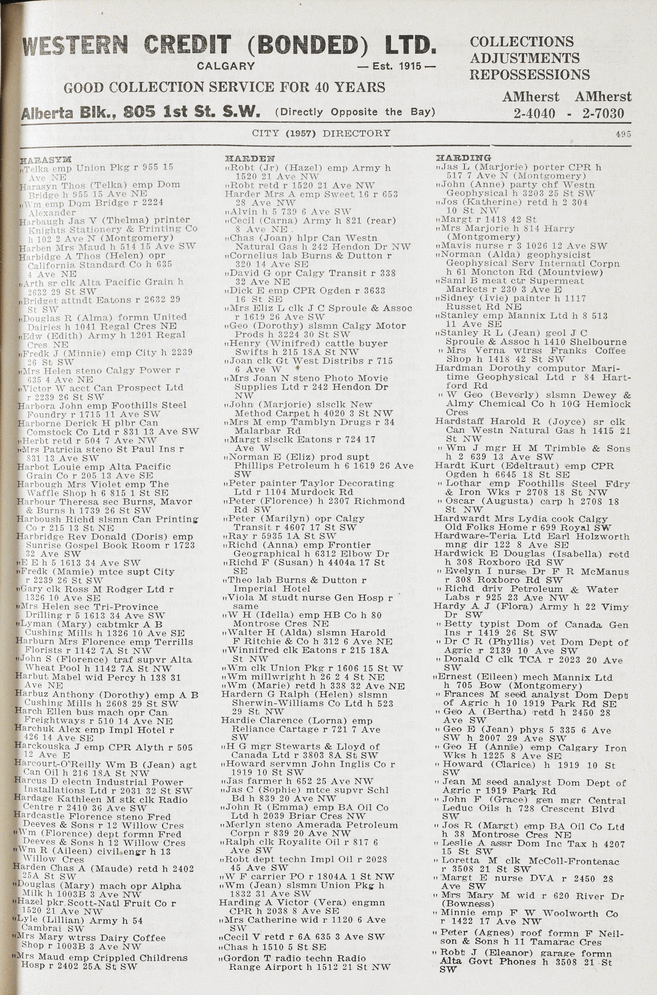 WESTERN CREDIT (BONDED) LTD.
CALGARY — Est. 1915 —
GOOD COLLECTION SERVICE FOR 40 YEARS
Alberta Blk., 805 1st St. S.W. (Directly Opposite the Bay)
COLLECTIONS
ADJUSTMENTS
REPOSSESSIONS
AMherst AMherst
2-4040 - 2-7030
CITY (1957) DIRECTORY 495
HARASYM
„Telka emp Union Pkg r 955 15
Ave NE
Harasyn Thos (Telka) emp Dom
Bridge h 955 15 Ave NE
„Wm emp Dom Bridge r 2224
Alexander
Harbaugh Jas V (Thelma) printer
Knights Stationery & Printing Co
h 102 2 Ave N (Montgomery)
Harben Mrs Maud h 514 15 Ave SW
Harbidge A Thos (Helen) opr
California Standard Co h 635
4 Ave NE
„Arth sr clk Alta Pacific Grain h
2632 29 St SW
„Bridget attndt Eatons r 2632 29
St SW
„Douglas R (Alma) formn United
Dairies h 1041 Regal Cres NE
„Edw (Edith) Army h 1291 Regal
Cres NE
„Fredk J (Minnie) emp City h 2239
26 St SW
„Mrs Helen steno Calgy Power r
635 4 Ave NE
„Victor W acct Can Prospect Ltd
r 2239 26 St SW
Harbora John emp Foothills Steel
Foundry r 1715 11 Ave SW
Harborne Derick H plbr Can
Comstock Co Ltd r 831 13 Ave SW
„Herbt retd r 504 7 Ave NW
„Mrs Patricia steno St Paul Ins r
831 13 Ave SW
Harbot Louie emp Alta Pacific
Grain Co r 205 13 Ave SE
Harbough Mrs Violet emp The
Waffle Shop h 6 815 1 St SE
Harbour Theresa sec Burns, Mavor
& Burns h 1739 26 St SW
Harboush Richd slsmn Can Printing
Co r 215 13 St NE
Harbridge Rev Donald (Doris) emp
Sunrise Gospel Book Room r 1723
32 Ave SW
„E E h 5 1613 34 Ave SW
„Fredk (Mamie) mtce supt City
r 2239 26 St SW
„Gary clk Ross M Rodger Ltd r
1326 10 Ave SE
„Mrs Helen sec Tri-Province
Drilling r 5 1613 34 Ave SW
„Lyman (Mary) cabtmkr A B
Cushing Mills h 1326 10 Ave SE
Harburn Mrs Florence emp Terrills
Florists r 1142 7A St NW
„John S (Florence) traf supvr Alta
Wheat Pool h 1142 7A St NW
Harbut Mabel wid Percy h 138 31
Ave NE
Harbuz Anthony (Dorothy) emp A B
Cushing Mills h 2608 29 St SW
Harch Ellen bus mach opr Can
Freightways r 510 14 Ave NE
Harchuk Alex emp Impl Hotel r
426 14 Ave SE
Harckouska J emp CPR Alyth r 505
12 Ave E
Harcourt-O'Reilly Wm B (Jean) agt
Can Oil h 216 18A St NW
Harcus D electn Industrial Power
Installations Ltd r 2031 32 St SW
Hardage Kathleen M stk clk Radio
Centre r 2410 36 Ave SW
Hardcastle Florence steno Fred
Deeves & Sons r 12 Willow Cres
„Wm (Florence) dept formn Fred
Deeves & Sons h 12 Willow Cres
„Wm R (Aileen) civil engr h 13
Willow Cres
Harden Chas A (Maude) retd h 2402
25A St SW
„Douglas (Mary) mach opr Alpha
Milk h 1003B 3 Ave NW
„Hazel pkr Scott-Natl Fruit Co r
1520 21 Ave NW
„Lyle (Lillian) Army h 54
Cambrai SW
„Mrs Mary wtrss Dairy Coffee
Shop r 1003B 3 Ave NW
„Mrs Maud emp Crippled Childrens
Hosp r 2402 25A St SW
HARDEN
„Robt (Jr) (Hazel) emp Army h
1520 21 Ave NW
„Robt retd r 1520 21 Ave NW
Harder Mrs A emp Sweet 16 r 653
28 Ave NW
„Alvin h 5 739 6 Ave SW
„Cecil (Carna) Army h 821 (rear)
8 Ave NE
„Chas (Joan) hlpr Can Westn
Natural Gas h 242 Hendon Dr NW
„Cornelius lab Burns & Dutton r
320 14 Ave SE
„David G opr Calgy Transit r 338
32 Ave NE
„Dick E emp CPR Ogden r 3633
16 St SE
„Mrs Eliz L clk J C Sproule & Assoc
r 1619 26 Ave SW
„Geo (Dorothy) slsmn Calgy Motor
Prods h 3224 30 St SW
„Henry (Winifred) cattle buyer
Swifts h 215 18A St NW
„Joan clk Gt West Distribs r 715
6 Ave W
„Mrs Joan N steno Photo Movie
Supplies Ltd r 242 Hendon Dr
NW
„John (Marjorie) slsclk New
Method Carpet h 4020 3 St NW
„Mrs M emp Tamblyn Drugs r 34
Malarbar Rd
„Margt slsclk Eatons r 724 17
Ave W
„Norman E (Eliz) prod supt
Phillips Petroleum h 6 1619 26 Ave
SW
„Peter painter Taylor Decorating
Ltd r 1104 Murdock Rd
„Peter (Florence) h 2307 Richmond
Rd SW
„Peter (Marilyn) opr Calgy
Transit r 4607 17 St SW
„Ray r 5935 1A St SW
„Richd (Anna) emp Frontier
Geographical h 6312 Elbow Dr
„Richd F (Susan) h 4404a 17 St
SE
„Theo lab Burns & Dutton r
Imperial Hotel
„Viola M studt nurse Gen Hosp r
same
„W H (Idella) emp HB Co h 80
Montrose Cres NE
„Walter H (Alda) slsmn Harold
F Ritchie & Co h 312 6 Ave NE
„Winnifred clk Eatons r 215 18A
St NW
„Wm clk Union Pkg r 1606 15 St W
„Wm millwright h 26 2 4 St NE
„Wm (Marie) retd h 338 32 Ave NE
Hardern G Ralph (Helen) slsmn
Sherwin-Williams Co Ltd h 523
29 St NW
Hardie Clarence (Lorna) emp
Reliance Cartage r 721 7 Ave
SW
„H G mgr Stewarts & Lloyd of
Canada Ltd r 3803 8A St SW
„Howard servmn John Inglis Co r
1919 10 St SW
„Jas farmer h 652 25 Ave NW
„Jas C (Sophie) mtce supvr Schl
Bd h 839 20 Ave NW
„John R (Emma) emp BA Oil Co
Ltd h 2039 Briar Cres NW
„Merlyn steno Amerada Petroleum
Corpn r 839 20 Ave NW
„Ralph clk Royalite Oil r 817 6
Ave SW
„Robt dept techn Impl Oil r 2028
45 Ave SW
„W F carrier PO r 1804A 1 St NW
„Wm (Jean) slsmn Union Pkg h
1832 31 Ave SW
Harding A Victor (Vera) engmn
CPR h 2038 8 Ave SE
„Mrs Catherine wid r 1120 6 Ave
SW
„Cecil V retd r 6A 635 3 Ave SW
„Chas h 1510 5 St SE
„Gordon T radio techn Radio
Range Airport h 1512 21 St NW
HARDING
„Jas L (Marjorie) porter CPR h
517 7 Ave N (Montgomery)
„John (Anne) party chf Westn
Geophysical h 3203 25 St SW
„Jos (Katherine) retd h 2 304
10 St NW
„Margt r 1418 42 St
„Mrs Marjorie h 814 Harry
(Montgomery)
„Mavis nurse r 3 1026 12 Ave SW
„Norman (Alda) geophysicist
Geophysical Serv Internatl Corpn
h 61 Moncton Rd (Mountview)
„Saml B meat ctr Supermeat
Markets r 230 3 Ave E
„Sidney (Ivie) painter h 1117
Russet Rd NE
„Stanley emp Mannix Ltd h 8 513
11 Ave SE
„Stanley R L (Jean) geol J C
Sproule & Assoc h 1410 Shelbourne
„Mrs Verna wtrss Franks Coffee
Shop h 1418 42 St SW
Hardman Dorothy computor Mari-
time Geophysical Ltd r 84 Hart-
ford Rd
„W Geo (Beverly) slsmn Dewey &
Almy Chemical Co h 10G Hemlock
Cres
Hardstaff Harold R (Joyce) sr clk
Can Westn Natural Gas h 1415 21
St NW
„Wm J mgr H M Trimble & Sons
h 2 639 13 Ave SW
Hardt Kurt (Edeltraut) emp CPR
Ogden h 6645 18 St SE
„Lothar emp Foothills Steel Fdry
& Iron Wks r 2708 18 St NW
„Oscar (Augusta) carp h 2708 18
St NW
Hardwardt Mrs Lydia cook Calgy
Old Folks Home r 699 Royal SW
Hardware-Teria Ltd Earl Holzworth
mng dir 122 8 Ave SE
Hardwick E Douglas (Isabella) retd
h 308 Roxboro Rd SW
„Evelyn I nurse Dr F R McManus
r 308 Roxboro Rd SW
„Richd driv Petroleum & Water
Labs r 925 23 Ave NW
Hardy A J (Flora) Army h 22 Vimy
Dr SW
„Betty typist Dom of Canada Gen
Ins r 1419 26 St SW
„Dr C R (Phyllis) vet Dom Dept of
Agric r 2139 10 Ave SW
„Donald C clk TCA r 2023 20 Ave
SW
„Ernest (Eileen) mech Mannix Ltd
h 705 Bow (Montgomery)
„Frances M seed analyst Dom Dept
of Agric h 10 1919 Park Rd SE
„Geo A (Bertha) retd h 2450 28
Ave SW
„Geo E (Jean) phys 5 335 6 Ave
SW h 2007 29 Ave SW
„Geo H (Annie) emp Calgary Iron
Wks h 1225 8 Ave SE
„Howard (Clarice) h 1919 10 St
SW
„Jean M seed analyst Dom Dept of
Agric r 1919 Park Rd
„John F (Grace) gen mgr Central
Leduc Oils h 728 Crescent Blvd
SW
„Jos R (Margt) emp BA Oil Co Ltd
h 38 Montrose Cres NE
„Leslie A assr Dom Inc Tax h 4207
15 St SW
„Loretta M clk McColl-Frontenac
r 3508 21 St SW
„Margt E nurse DVA r 2450 28
Ave SW
„Mrs Mary M wid r 620 River Dr
(Bowness)
„Minnie emp F W Woolworth Co
r 1422 17 Ave NW
„Peter (Agnes) roof formn F Neil-
son & Sons h 11 Tamarac Cres
„Robt J (Eleanor) garage formn
Alta Govt Phones h 3508 21 St
SW